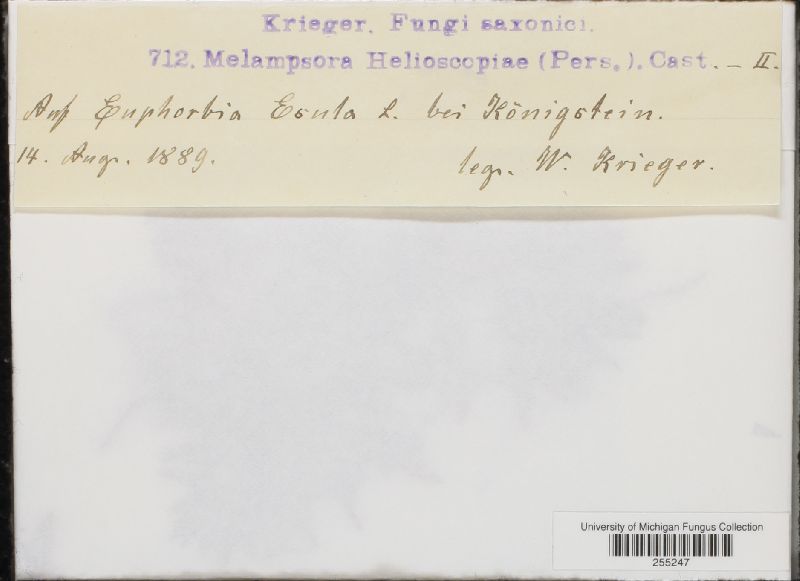 Krieger. Fungi saxonici.
712. Melampsora Helioscopiae (Pers.). Cast. – II.
Auf Euphorbia Esula L. bei Königstein.
14. Aug. 1889.
leg. W. Krieger.
University of Michigan Fungus Collection
255247